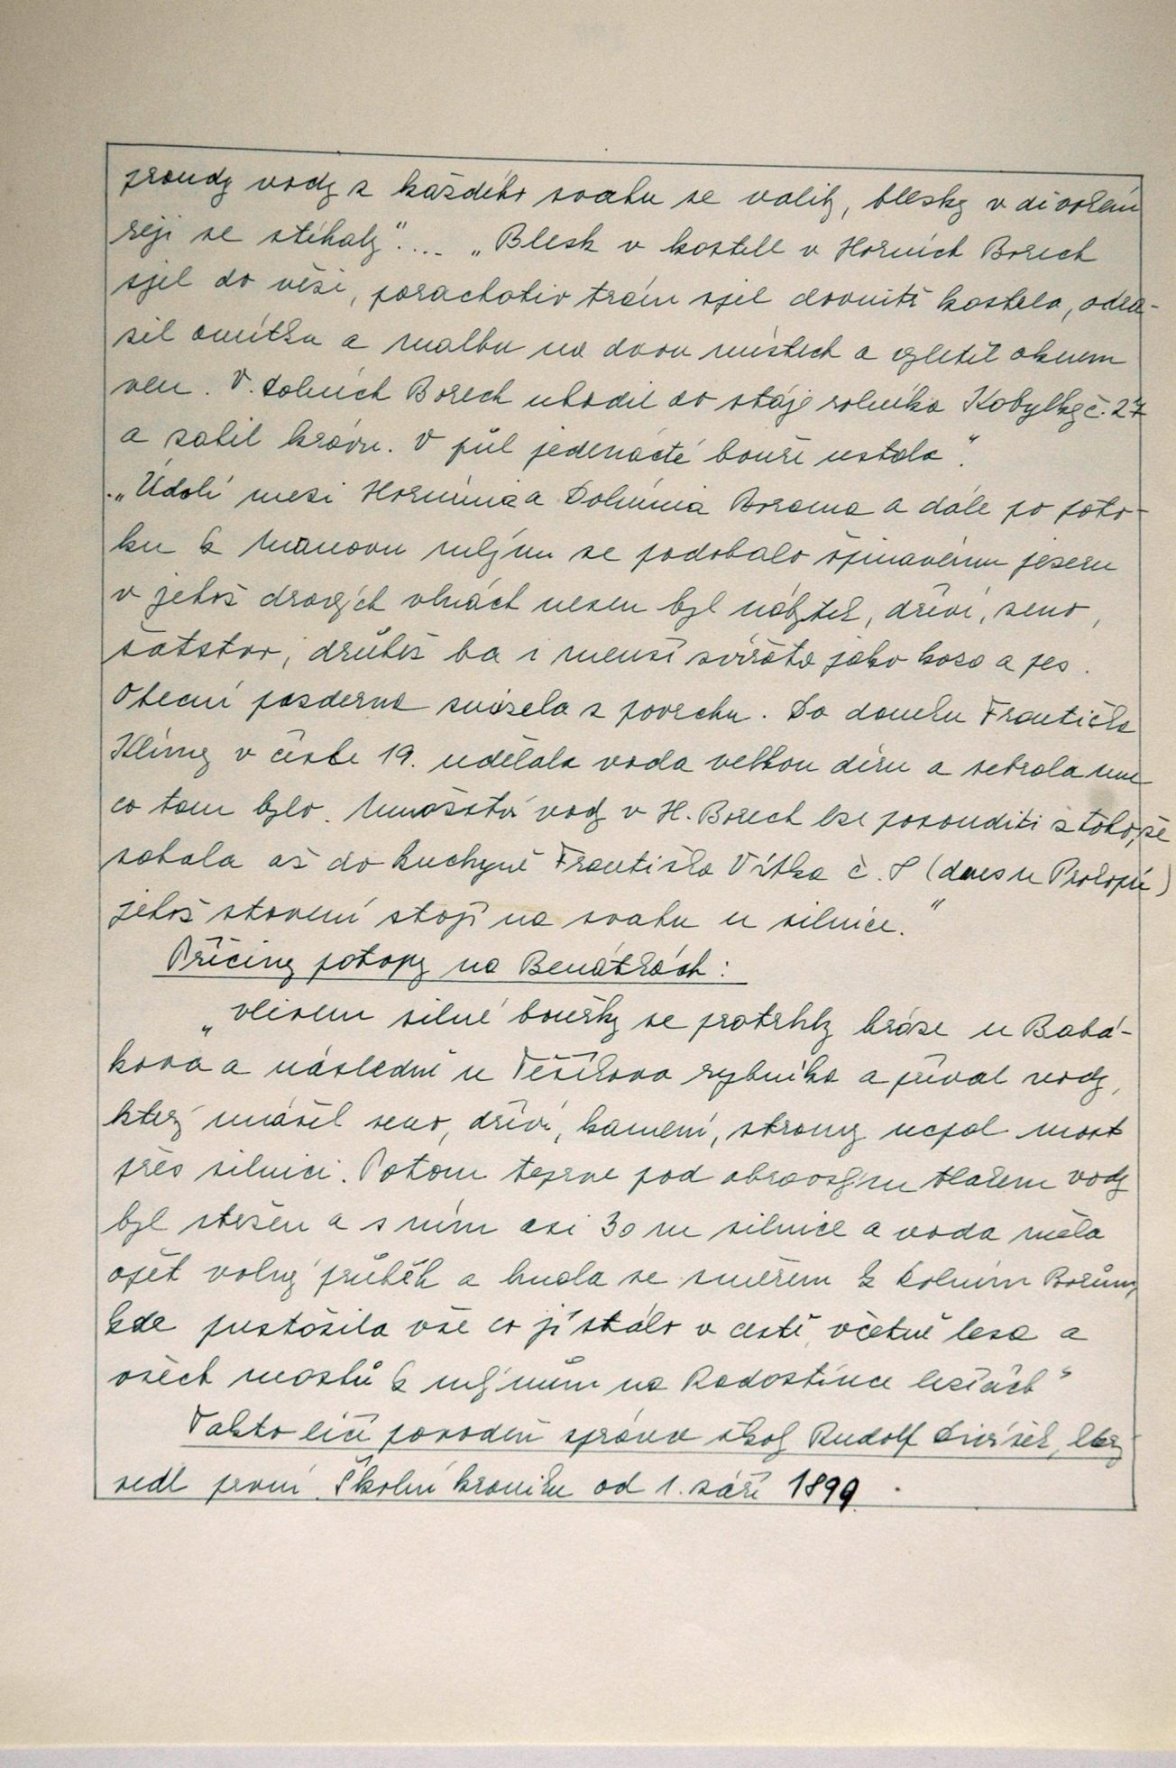 proudy vody z každého svahu se valily, blesky v divokém
reji se stíhaly".... „Blesk v kostele v Horních Borech
sjel do věži, porachotiv trám sjel dovnitř kostela, odra-
zil omítku a malbu na dvou místech a vyletěl oknem
ven. V. Dolních Borech uhodil do stáje rolníka Kobylky č. 27
a zabil krávu. V půl jedenácté bouře ustala".
„Údolí mezi Horníma a Dolníma Borama a dále po poto-
ku k Manovu mlýnu se podobalo špinavému jezeru
v jehož dravých vlnách nesen byl nábytek, dříví, seno,
šatstvo, drůbež ba i menší zvířata jako koza a pes.
Obecní pazderna zmizela z povrchu. Do domku Františka
Klímy v čísle 19. udělala voda velkou díru a sebrala mu
co tam bylo. Množství vody v H. Borech lze posouditi z toho, že
sahala až do kuchyně Františka Vítka č. 8 (dnes u Prokopů)
jehož stavení stojí na svahu u silnice."
Příčiny potopy na Benátkách:
„vlivem silné bouřky se protrhly hráze u Babá-
kova a následně u Téšíkova rybníka a příval vody,
který unášel seno, dříví, kamení, stromy ucpal most
přes silnici. Potom teprve pod obrovským tlakem vody
byl stržen a s ním asi 30 m silnice a voda měla
opět volný průběh a hnala se směrem k Dolním Borům,
kde pustošila vše co jí stálo v cestě, včetně lesa a
všech mostů k mlýnům na Radostínce ležících"
Takto líčí povodeň správce školy Rudolf Divišek, který
vedl první Školní kroniku od 1. září 1899.